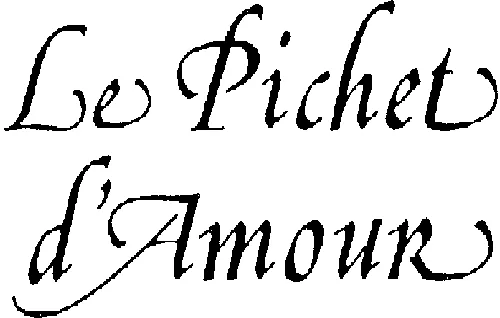 Le Pichet
d'Amour